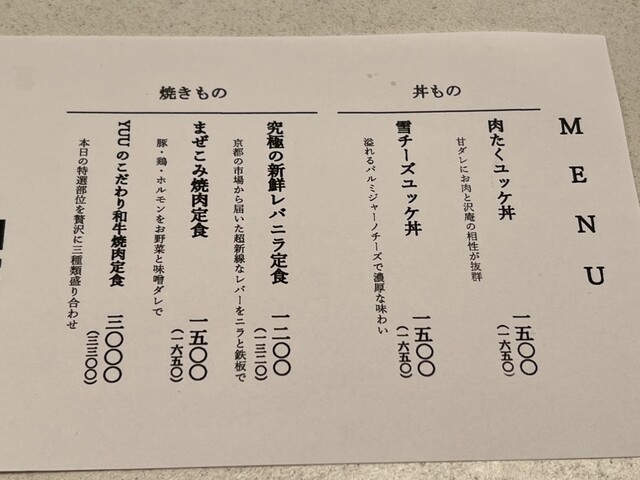 MENU
丼もの
肉たくユッケ丼
一五〇〇
(一六五〇)
甘ダレにお肉と沢庵の相性が抜群
雪チーズユッケ丼
一五〇〇
(一六五〇)
溢れるパルミジャーノチーズで濃厚な味わい
焼きもの
究極の新鮮レバニラ定食
一二〇〇
(一三二〇)
京都の市場から届いた超新線なレバーをニラと鉄板で
まぜこみ焼肉定食
一五〇〇
(一六五〇)
豚・鶏・ホルモンをお野菜と味噌ダレで
YUUのこだわり和牛焼肉定食
三〇〇〇
(三三〇〇)
本日の特選部位を贅沢に三種類盛り合わせ